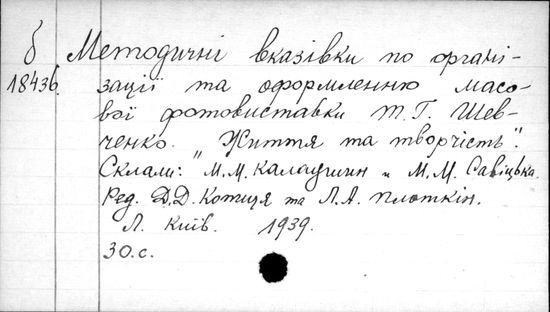 б Методичні вказівки по органі-
18436. зації та оформленню масо-
вої фотовиставки Т.Г. Шев-
ченко. Життя та творчість".
Склали: "М.М. Калаушин и М.М. Савіцька.
Ред. Д.Д. Копиця та Л.А. Плоткін.
Л. Київ. 1939.
30.с.